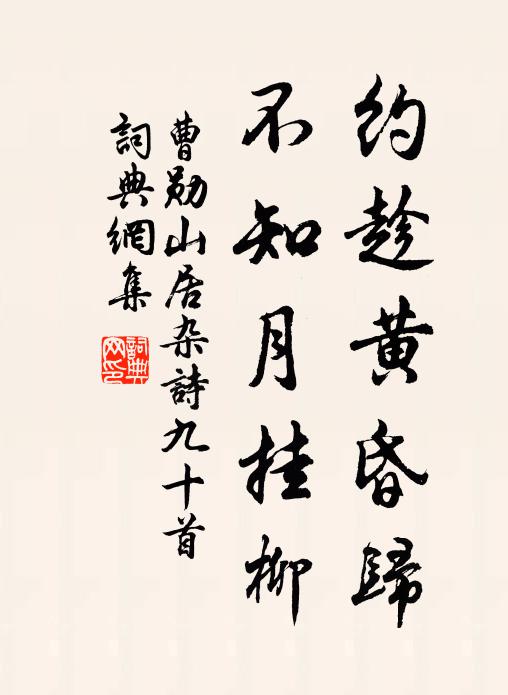 約趁黃昏歸
不知月挂柳
曹勛山居杂詩九十首
詞典網集
詞典网印